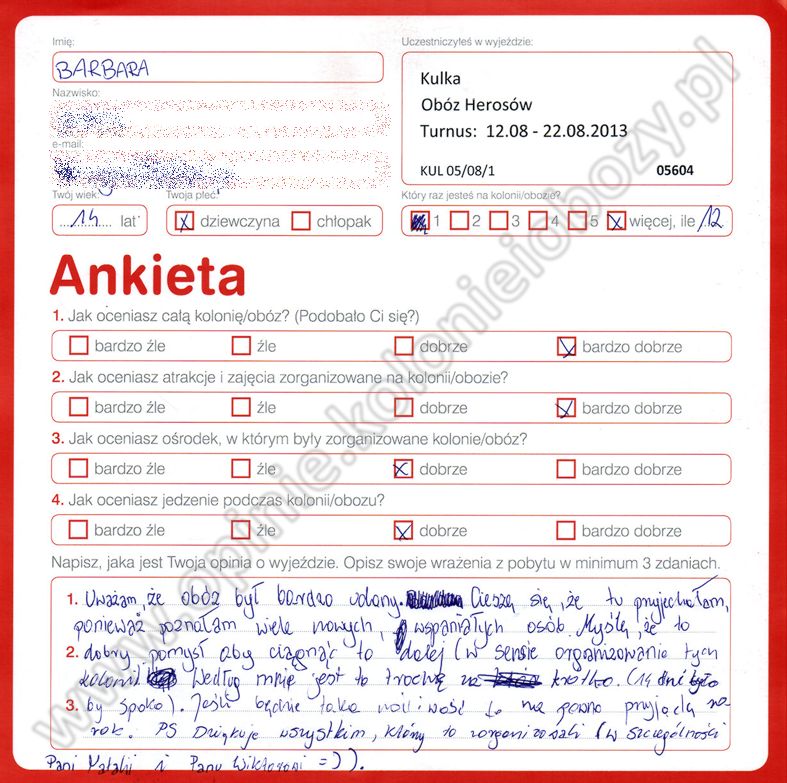 Imię:
BARBARA
Nazwisko:
e-mail:
Twój wiek:
14 lat
Twoja płeć:
dziewczyna chłopak
Uczestniczyłeś w wyjeździe:
Kulka
Obóz Herosów
Turnus: 12.08 - 22.08.2013
KUL 05/08/1 05604
Który raz jesteś na kolonii/obozie?
1 2 3 4 5 więcej, ile 12
Ankieta
1. Jak oceniasz całą kolonię/obóz? (Podobało Ci się?)
bardzo źle źle dobrze bardzo dobrze
2. Jak oceniasz atrakcje i zajęcia zorganizowane na kolonii/obozie?
bardzo źle źle dobrze bardzo dobrze
3. Jak oceniasz ośrodek, w którym były zorganizowane kolonie/obóz?
bardzo źle źle dobrze bardzo dobrze
4. Jak oceniasz jedzenie podczas kolonii/obozu?
bardzo źle źle dobrze bardzo dobrze
Napisz, jaka jest Twoja opinia o wyjeździe. Opisz swoje wrażenia z pobytu w minimum 3 zdaniach.
1. Uważam, że obóz był bardzo udany. Cieszę się, że tu przyjechałam,
ponieważ poznałam wiele nowych, wspaniałych osób. Myślę, że to
2. dobry pomysł aby ciągnąć to dalej (w sensie organizowanie tych
kolonii) Według mnie jest to trochę za krótko. (14 dni było
3. by spoko). Jeśli będzie taka możliwość to na pewno przyjadę za
rok. PS Dziękuje wszystkim, którzy to zorganizowali (w szczególności
Pani Natalii i Panu Wiktorowi =)).
www.opinie.kolonieiobozy.pl